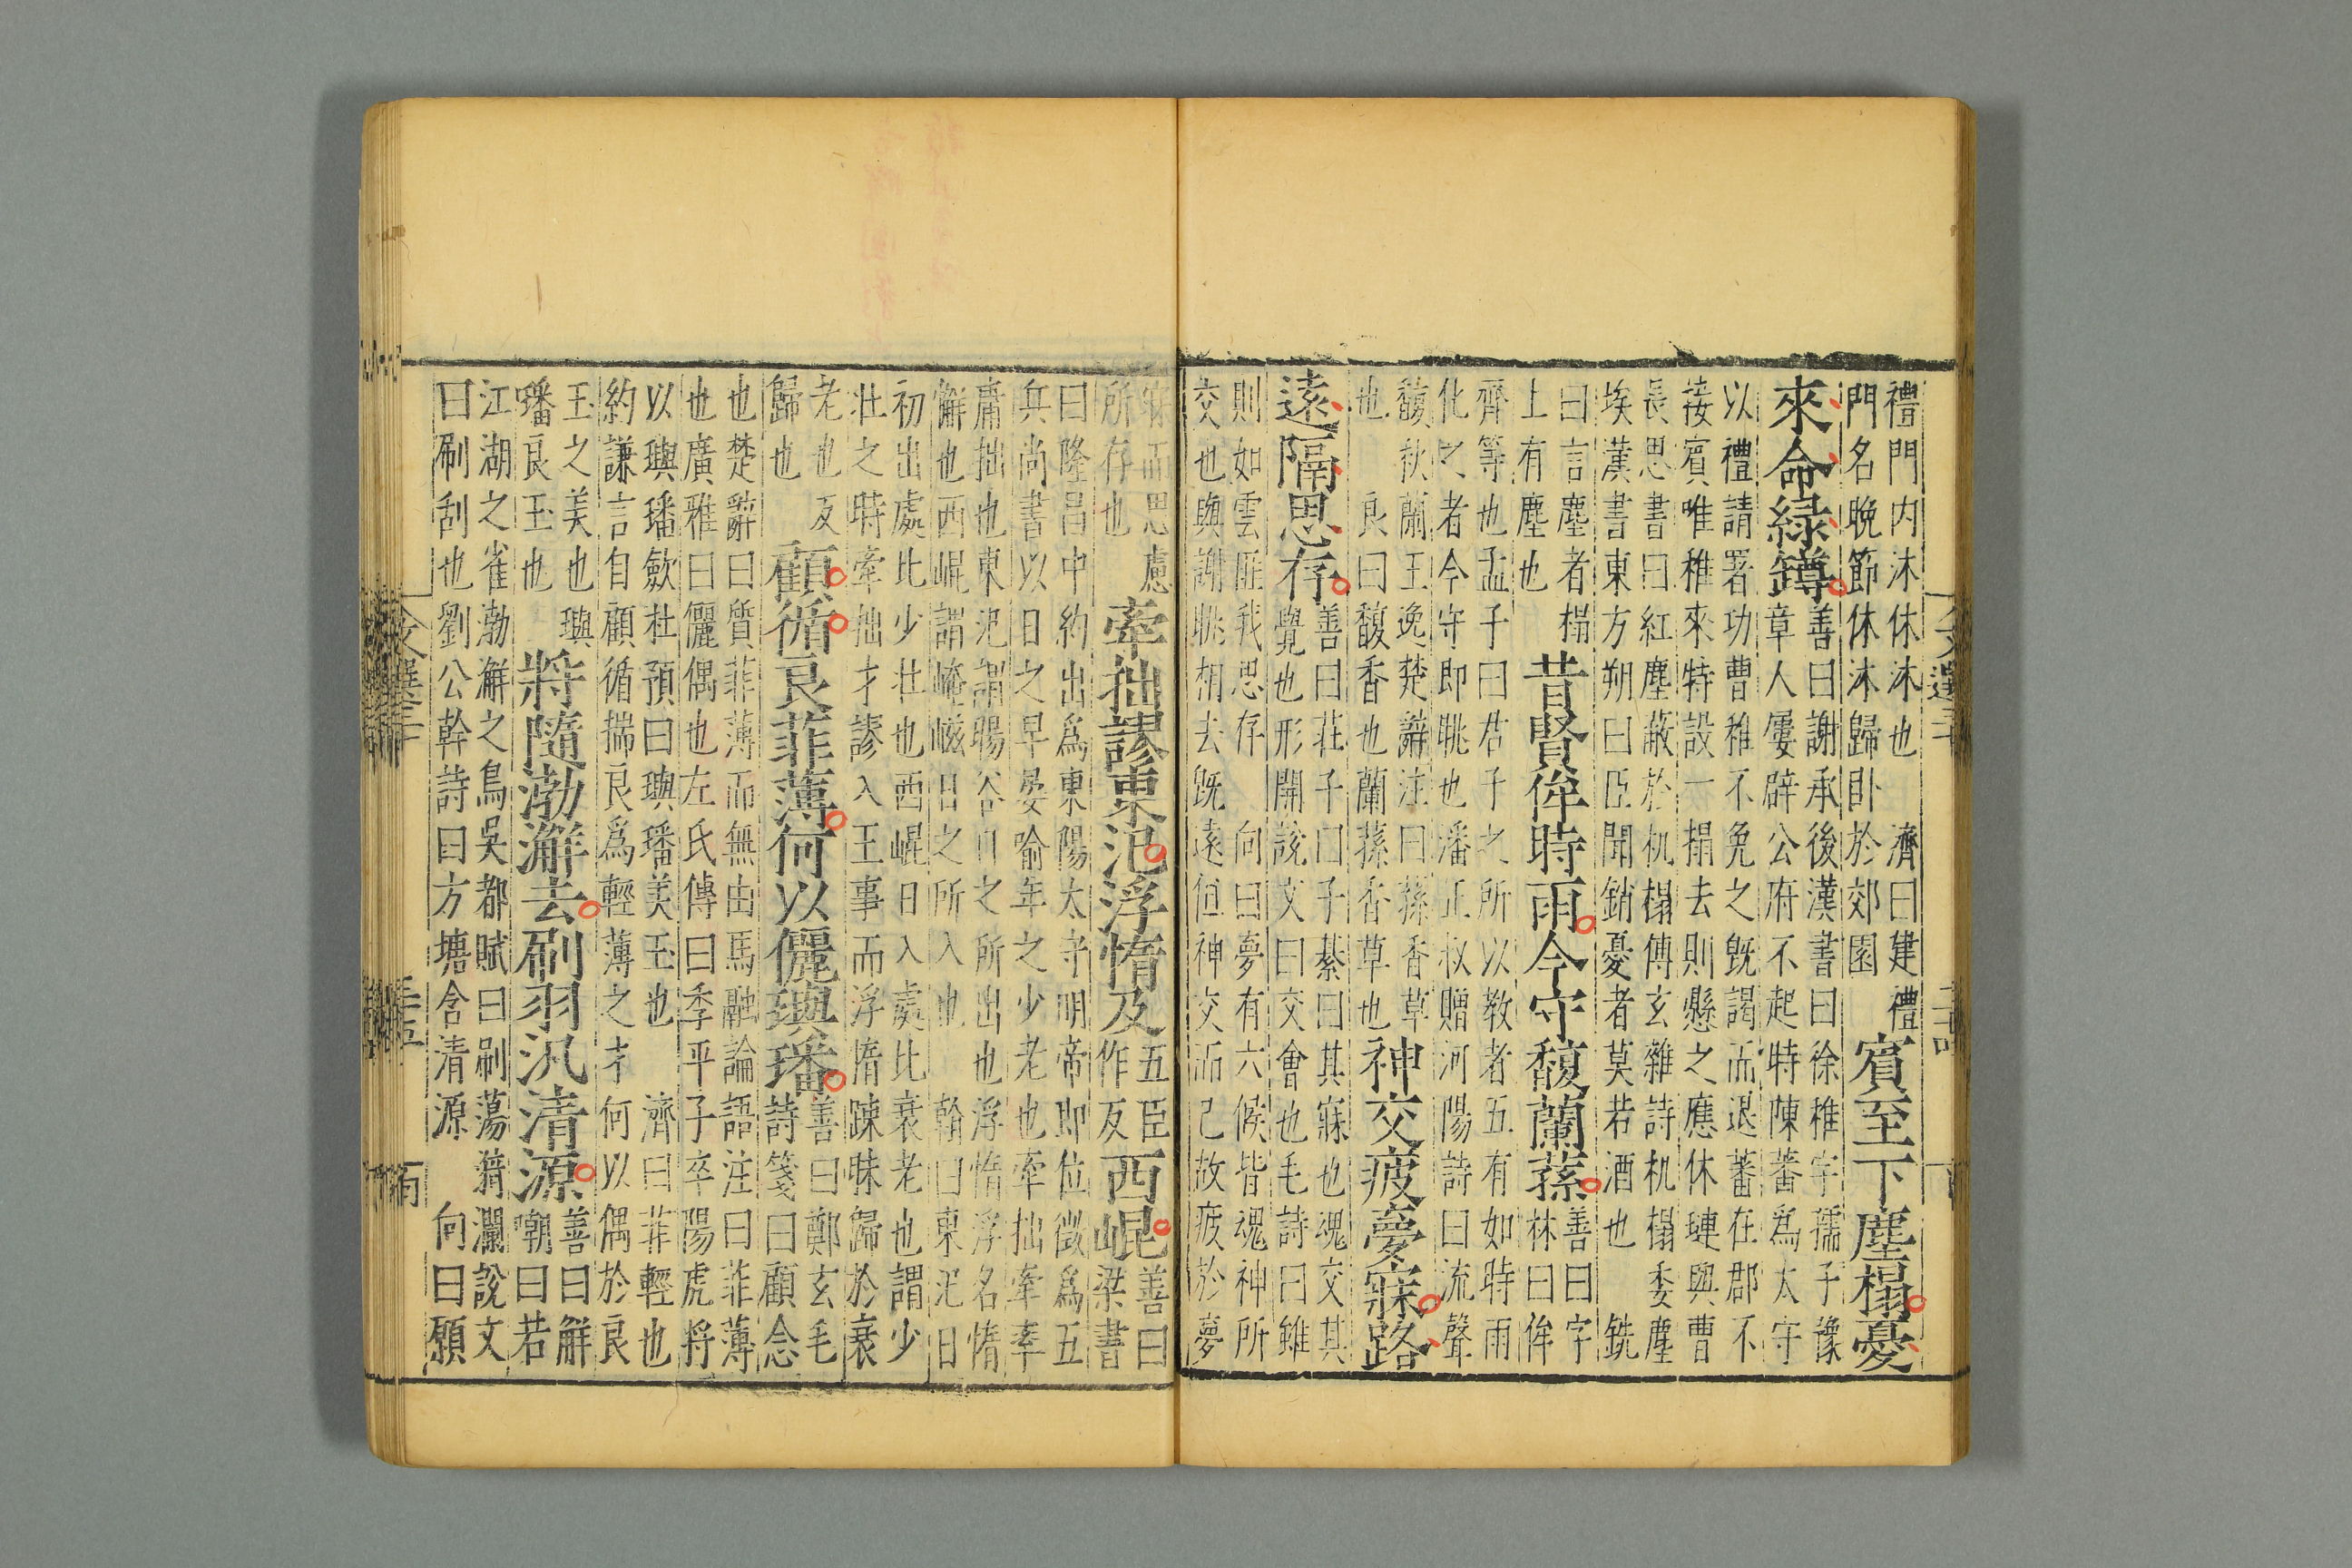 禮門内沐休沐也　濟曰建禮
門名晚節休沐歸卧於郊園
賓至下塵榻憂
來命綠罇
善曰謝承後漢書曰徐稚字孺子豫
章人屢辟公府不起時陳蕃爲太守
以禮請署功曹稚不免之既謁而退蕃在郡不
接賓唯稚來特設一榻去則懸之應休璉與曹
長思書曰紅塵蔽於机榻傅玄雜詩机榻委塵
埃漢書東方朔曰臣聞銷憂者莫若酒也　銑
曰言塵者榻
上有塵也
昔賢侔時雨今守馥蘭蓀
善曰字
林曰侔
齊等也孟子曰君子之所以教者五有如時雨
化之者今守即眺也潘正叔贈河陽詩曰流聲
馥秋蘭王逸楚辭注曰蓀香草
也　良曰馥香也蘭蓀香草也
神交疲夢寐路
遠隔思存
善曰莊子曰子綦曰其寐也魂交其
覺也形開說文曰交會也毛詩曰雖
則如雲匪我思存　向曰夢有六候皆魂神所
交也與謝眺相去既遠但神交而已故疲於夢
寐而思慮
所存也
牽拙謬東汜浮惰及西崐
五臣
作反
善曰
梁書
曰隆昌中約出爲東陽太守明帝即位徵爲五
兵尚書以日之早晏喻年之少老也牽拙牽率
庸拙也東汜謂暘谷日之所出也浮惰浮名惰
懈也西崐謂崦嵫日之所入也　翰曰東汜日
初出處比少壯也西崐日入處比衰老也謂少
壯之時牽拙才謬入王事而浮惰踈昧歸於衰
老也反
歸也
顧循良菲薄何以儷璵璠
善曰鄭玄毛
詩箋曰顧念
也楚辭曰質菲薄而無由馬融論語注曰菲薄
也廣雅曰儷偶也左氏傳曰季平子卒陽虎將
以璵璠歛杜預曰璵璠美玉也　濟曰菲輕也
約謙言自顧循揣良爲輕薄之才何以偶於良
玉之美也璵
璠良玉也
將隨渤澥去刷羽汎清源
善曰解
嘲曰若
江湖之雀渤澥之鳥吳都賦曰刷蕩漪瀾說文
曰刷刮也劉公幹詩曰方塘含清源　向曰願